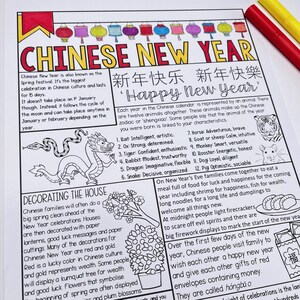 CHINESE NEW YEAR
Chinese New Year is also known as the
Spring Festival. It's the biggest
celebration in Chinese culture and lasts
for 15 days.
It doesn't take place on 1st January
though. Instead it follows the cycle of
the moon and can take place anytime in
January or February depending on the
year.
新年快乐 新年快樂
Happy New Year
Each year in the Chinese calendar is represented by an animal. There
are twelve animals altogether. These animals make up the Chinese
zodiac or 'shengxiao'. Some people say that the animal of the year
you were born is linked to your character!
1. Rat: Intelligent, artistic.
2. Ox: Strong, determined.
3. Tiger: Confident, enthusiastic.
4. Rabbit: Modest, trustworthy
5. Dragon: Imaginative, flexible
6. Snake: Decisive, organized
7. Horse: Adventurous, brave
8. Goat or sheep: Calm,
9. Monkey: Smart, versatile
10. Rooster: Energetic, honest
11. Dog: Loyal, diligent
12. Pig: Optimistic, sociable
DECORATING THE HOUSE
Chinese families will often do a
big spring clean ahead of the
New Year celebrations. Houses
are then decorated with paper
lanterns, good luck messages and paper
cuttings. Many of the decorations for
Chinese New Year are red and gold.
Red is a lucky color in Chinese culture
and gold represents wealth. Some people
will display a kumquat tree for wealth
and good luck. Flowers that symbolise
the beginning of spring are often displayed
and plum blossoms.
On New Year's Eve families come together to eat a
meal full of food for luck and happiness for the coming
year including shrimp for happiness, fish for wealth,
long noodles for a long life and dumplings to
let old things go.
At midnight people light firecrackers
to scare off evil spirits and there are
big firework displays to mark the start of the new year
Over the first few days of the new
year, Chinese people visit family to
wish each other a happy new year
and give each other gifts of red
envelopes containing money
They are called hóngbāo